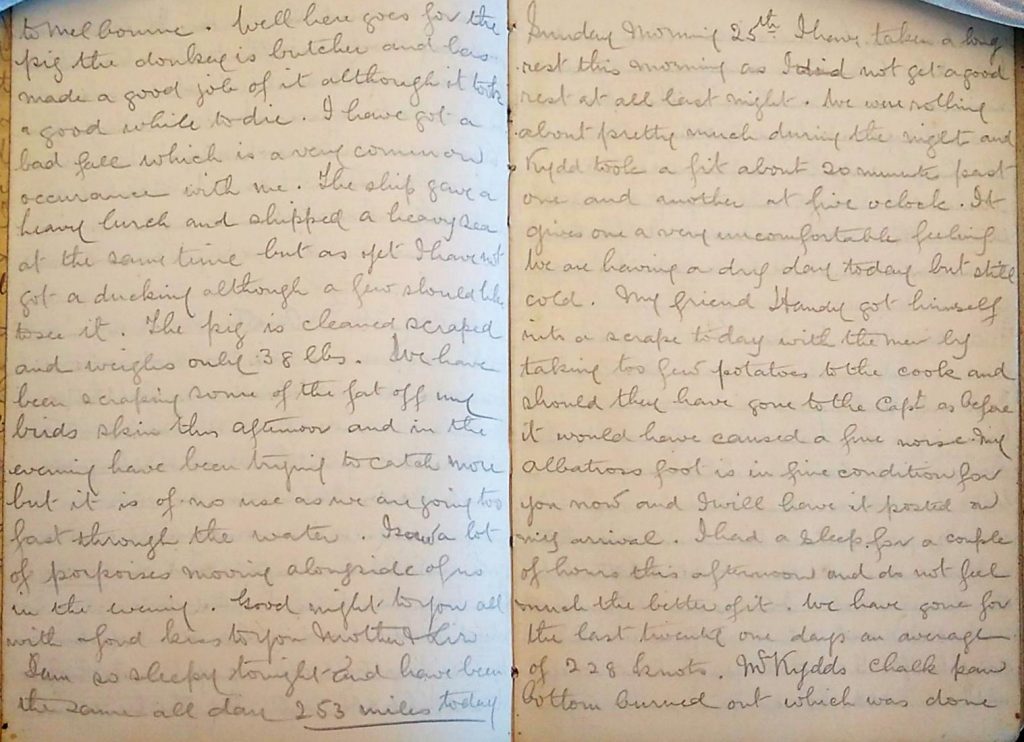 to Melbourne. Well here goes for the
pig the donkey is butcher and has
made a good job of it although it took
a good while to die. I have got a
bad fall which is a very common
occurance with me. The ship gave a
heavy lurch and shipped a heavy sea
at the same time but as yet I have not
got a ducking although a few should like
to see it. The pig is cleaned scraped
and weighs only 38 lbs. We have
been scraping some of the fat off my
birds skin this afternoon and in the
evening have been trying to catch more
but it is of no use as we are going too
fast through the water. I saw a lot
of porpoises moving alongside of us
in the evening. Good night to you all
with a fond kiss to you Mother &
I am so sleepy tonight and have been
the same all day 253 miles today
Sunday Morning 25th I have taken a long
rest this morning as I did not get a good
rest at all last night. We were rolling
about pretty much during the night and
Kydd took a fit about 20 minute past
one and another at five oclock. It
gives one a very uncomfortable feeling
We are having a dry day today but still
cold. My friend Handy got himself
into a scrape today with the men by
taking too few potatoes to the cook and
should they have gone to the Capt as before
it would have caused a fine noise. My
albatross foot is in fine condition for
you now and I will have it posted on
my arrival. I had a sleep for a couple
of hours this afternoon and do not feel
much the better of it. We have gone for
the last twenty one days an average
of 228 knots. Mr Kydds chalk pan
bottom burned out which was done